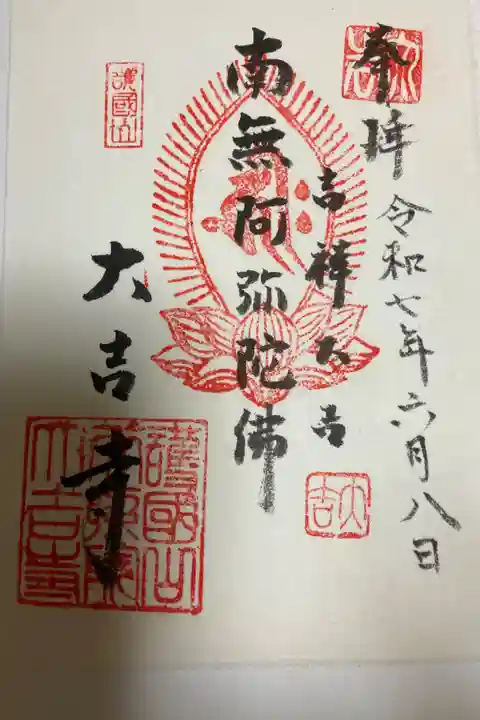 奉拝 令和七年六月八日
吉祥大吉
大吉
南無阿弥陀佛
護國山
大吉寺